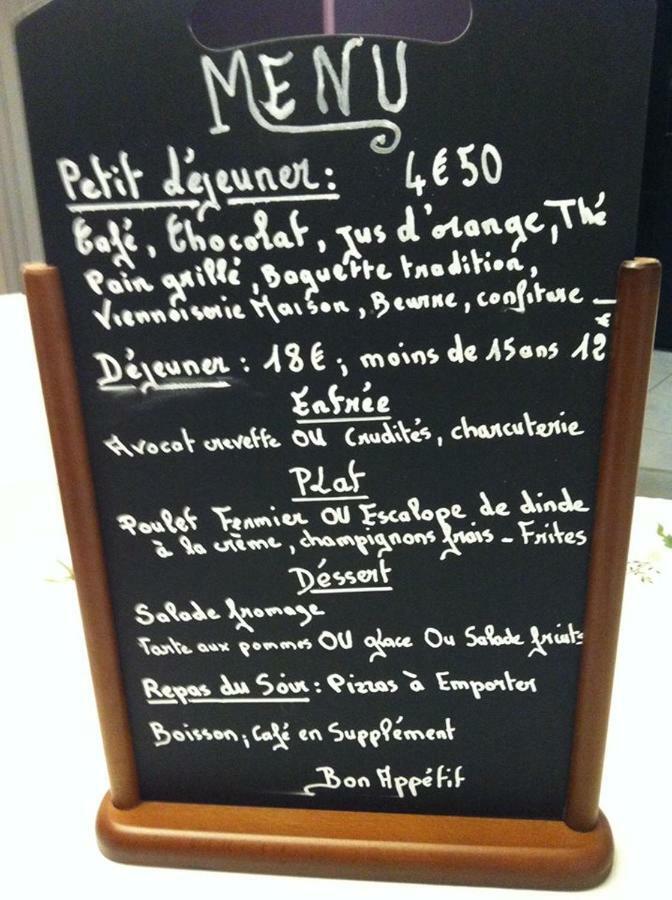 MENU
Petit déjeuner: 4€50
Café, Chocolat, Jus d'orange, Thé
Pain grillé, Baguette tradition,
Viennoiserie Maison, Beurre, confiture
Déjeuner : 18€ ; moins de 15ans 12
Entrée
Avocat crevette OU Crudités, charcuterie
PLat
Poulet Fermier OU Escalope de dinde
à la crème, champignons frais - Frites
Déssert
Salade fromage
Tarte aux pommes OU glace Ou Salade fruits
Repas du Soir : Pizzas à Emporter
Boisson, Café en Supplément
Bon Appétit